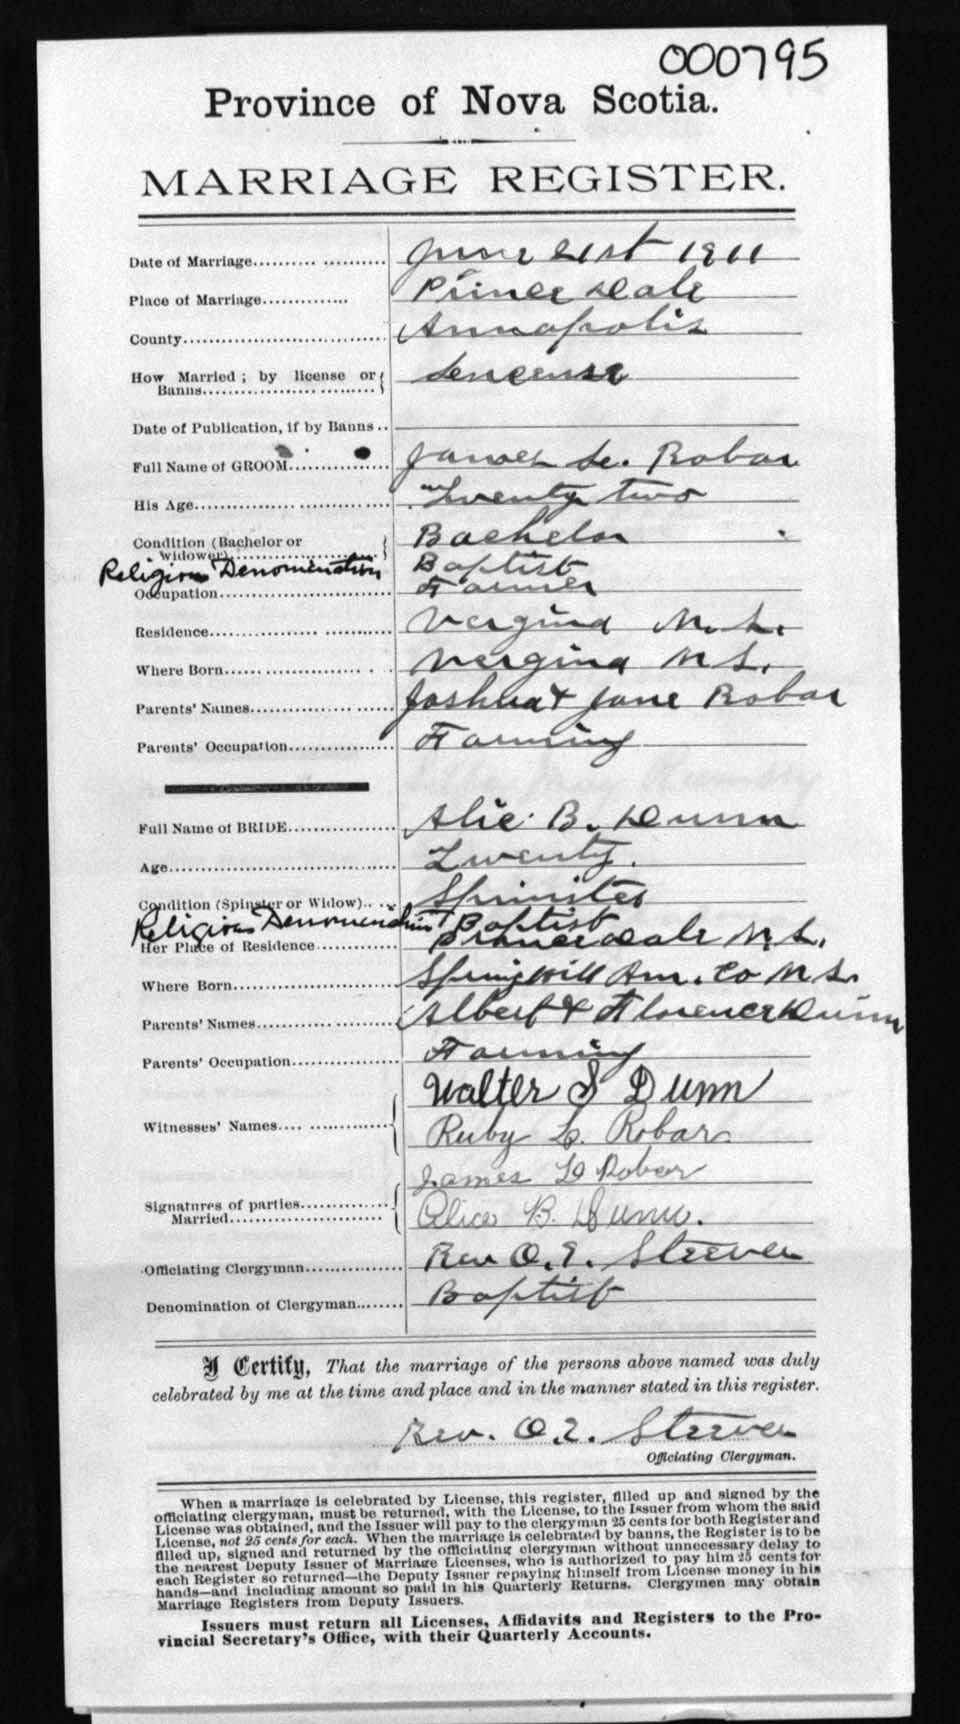 000795
Province of Nova Scotia.
MARRIAGE REGISTER.
Date of Marriage.......... June 21st 1911
Place of Marriage............. Prince Dale
County................................. Annapolis
How Married; by license or
Banns........................... License
Date of Publication, if by Banns..
Full Name of GROOM................ James L. Robar
His Age................................ Twenty two
Condition (Bachelor or
Widower)....................... Bachelor
Religious Denomination Baptist
Occupation............................ Farmer
Residence.............................. Vergina N.S.
Where Born............................ Vergina N S.
Parents' Names....................... Joshua & Jane Robar
Parents' Occupation................ Farming
Full Name of BRIDE................ Alic B. Dunn
Age....................................... Twenty.
Condition (Spinster or Widow)..... Sprinster
Religious Denomination Baptist
Her Place of Residence............ Prince Dale N.S.
Where Born............................ Springhill Ann. Co N S.
Parents' Names....................... Albert & Florence Dunn
Parents' Occupation................ Farming
Witnesses' Names.... .............. Walter S Dunn
Ruby L. Robar
Signatures of parties
Married............................ James L Robar
Alice B. Dunn.
Officiating Clergyman.............. Rev O.E. Steeves
Denomination of Clergyman........ Baptist
I Certify, That the marriage of the persons above named was duly
celebrated by me at the time and place and in the manner stated in this register.
Rev. O.E. Steeves
Officiating Clergyman.
When a marriage is celebrated by License, this register, filled up and signed by the
officiating clergyman, must be returned, with the License, to the Issuer from whom the said
License was obtained, and the Issuer will pay to the clergyman 25 cents for both Register and
License, not 25 cents for each. When the marriage is celebrated by banns, the Register is to be
filled up, signed and returned by the officiating clergyman without unnecessary delay to
the nearest Deputy Issuer of Marriage Licenses, who is authorized to pay him 25 cents for
each Register so returned—the Deputy Issuer repaying himself from License money in his
hands—and including amount so paid in his Quarterly Returns. Clergymen may obtain
Marriage Registers from Deputy Issuers.
Issuers must return all Licenses, Affidavits and Registers to the Pro-
vincial Secretary's Office, with their Quarterly Accounts.